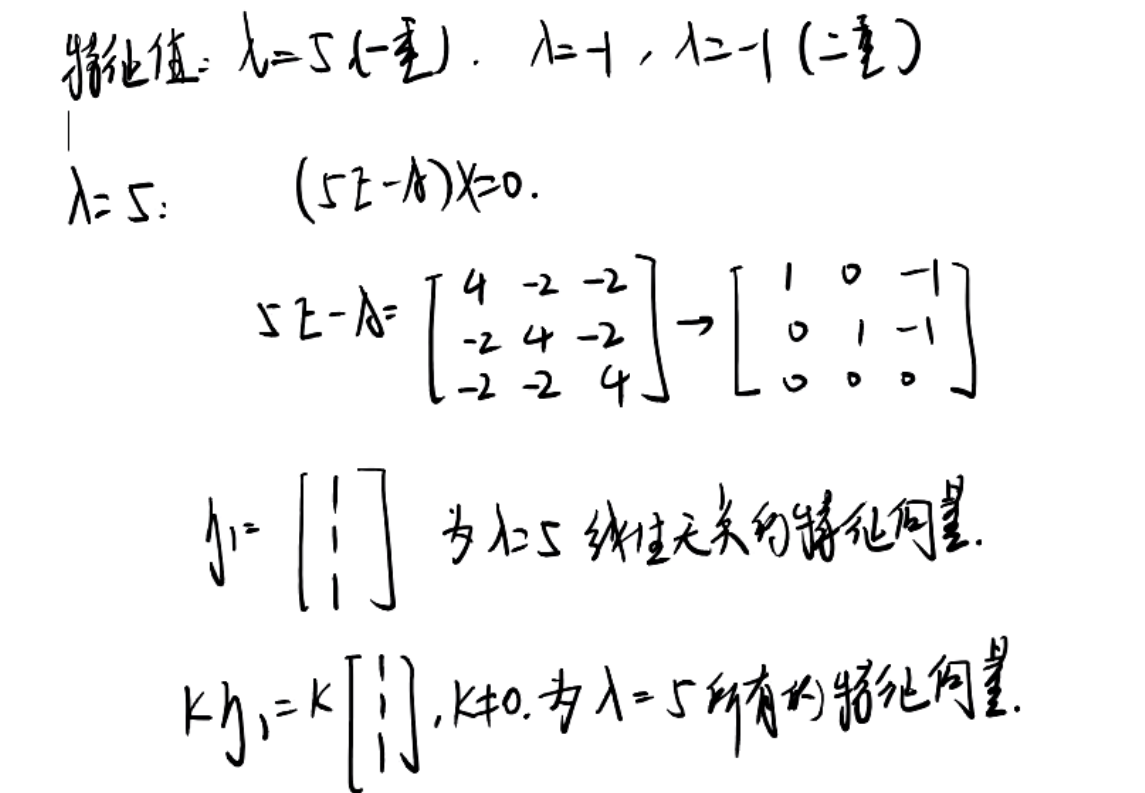 特征值: λ=5(一重). λ=-1, λ=-1(二重)
λ=5: (5E-A)X=0.
5E-A= [4 -2 -2; -2 4 -2; -2 -2 4] → [1 0 -1; 0 1 -1; 0 0 0]
η₁= [1; 1; 1] 为λ=5 线性无关的特征向量.
kη₁=k [1; 1; 1], k≠0. 为λ=5所有的特征向量.